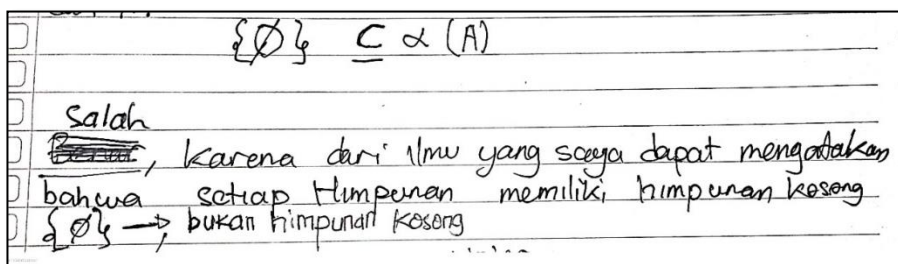 {∅} ⊆ α (A)
Salah
, karena dari ilmu yang saya dapat mengatakan
bahwa setiap Himpunan memiliki himpunan kosong
{∅} → bukan himpunan kosong